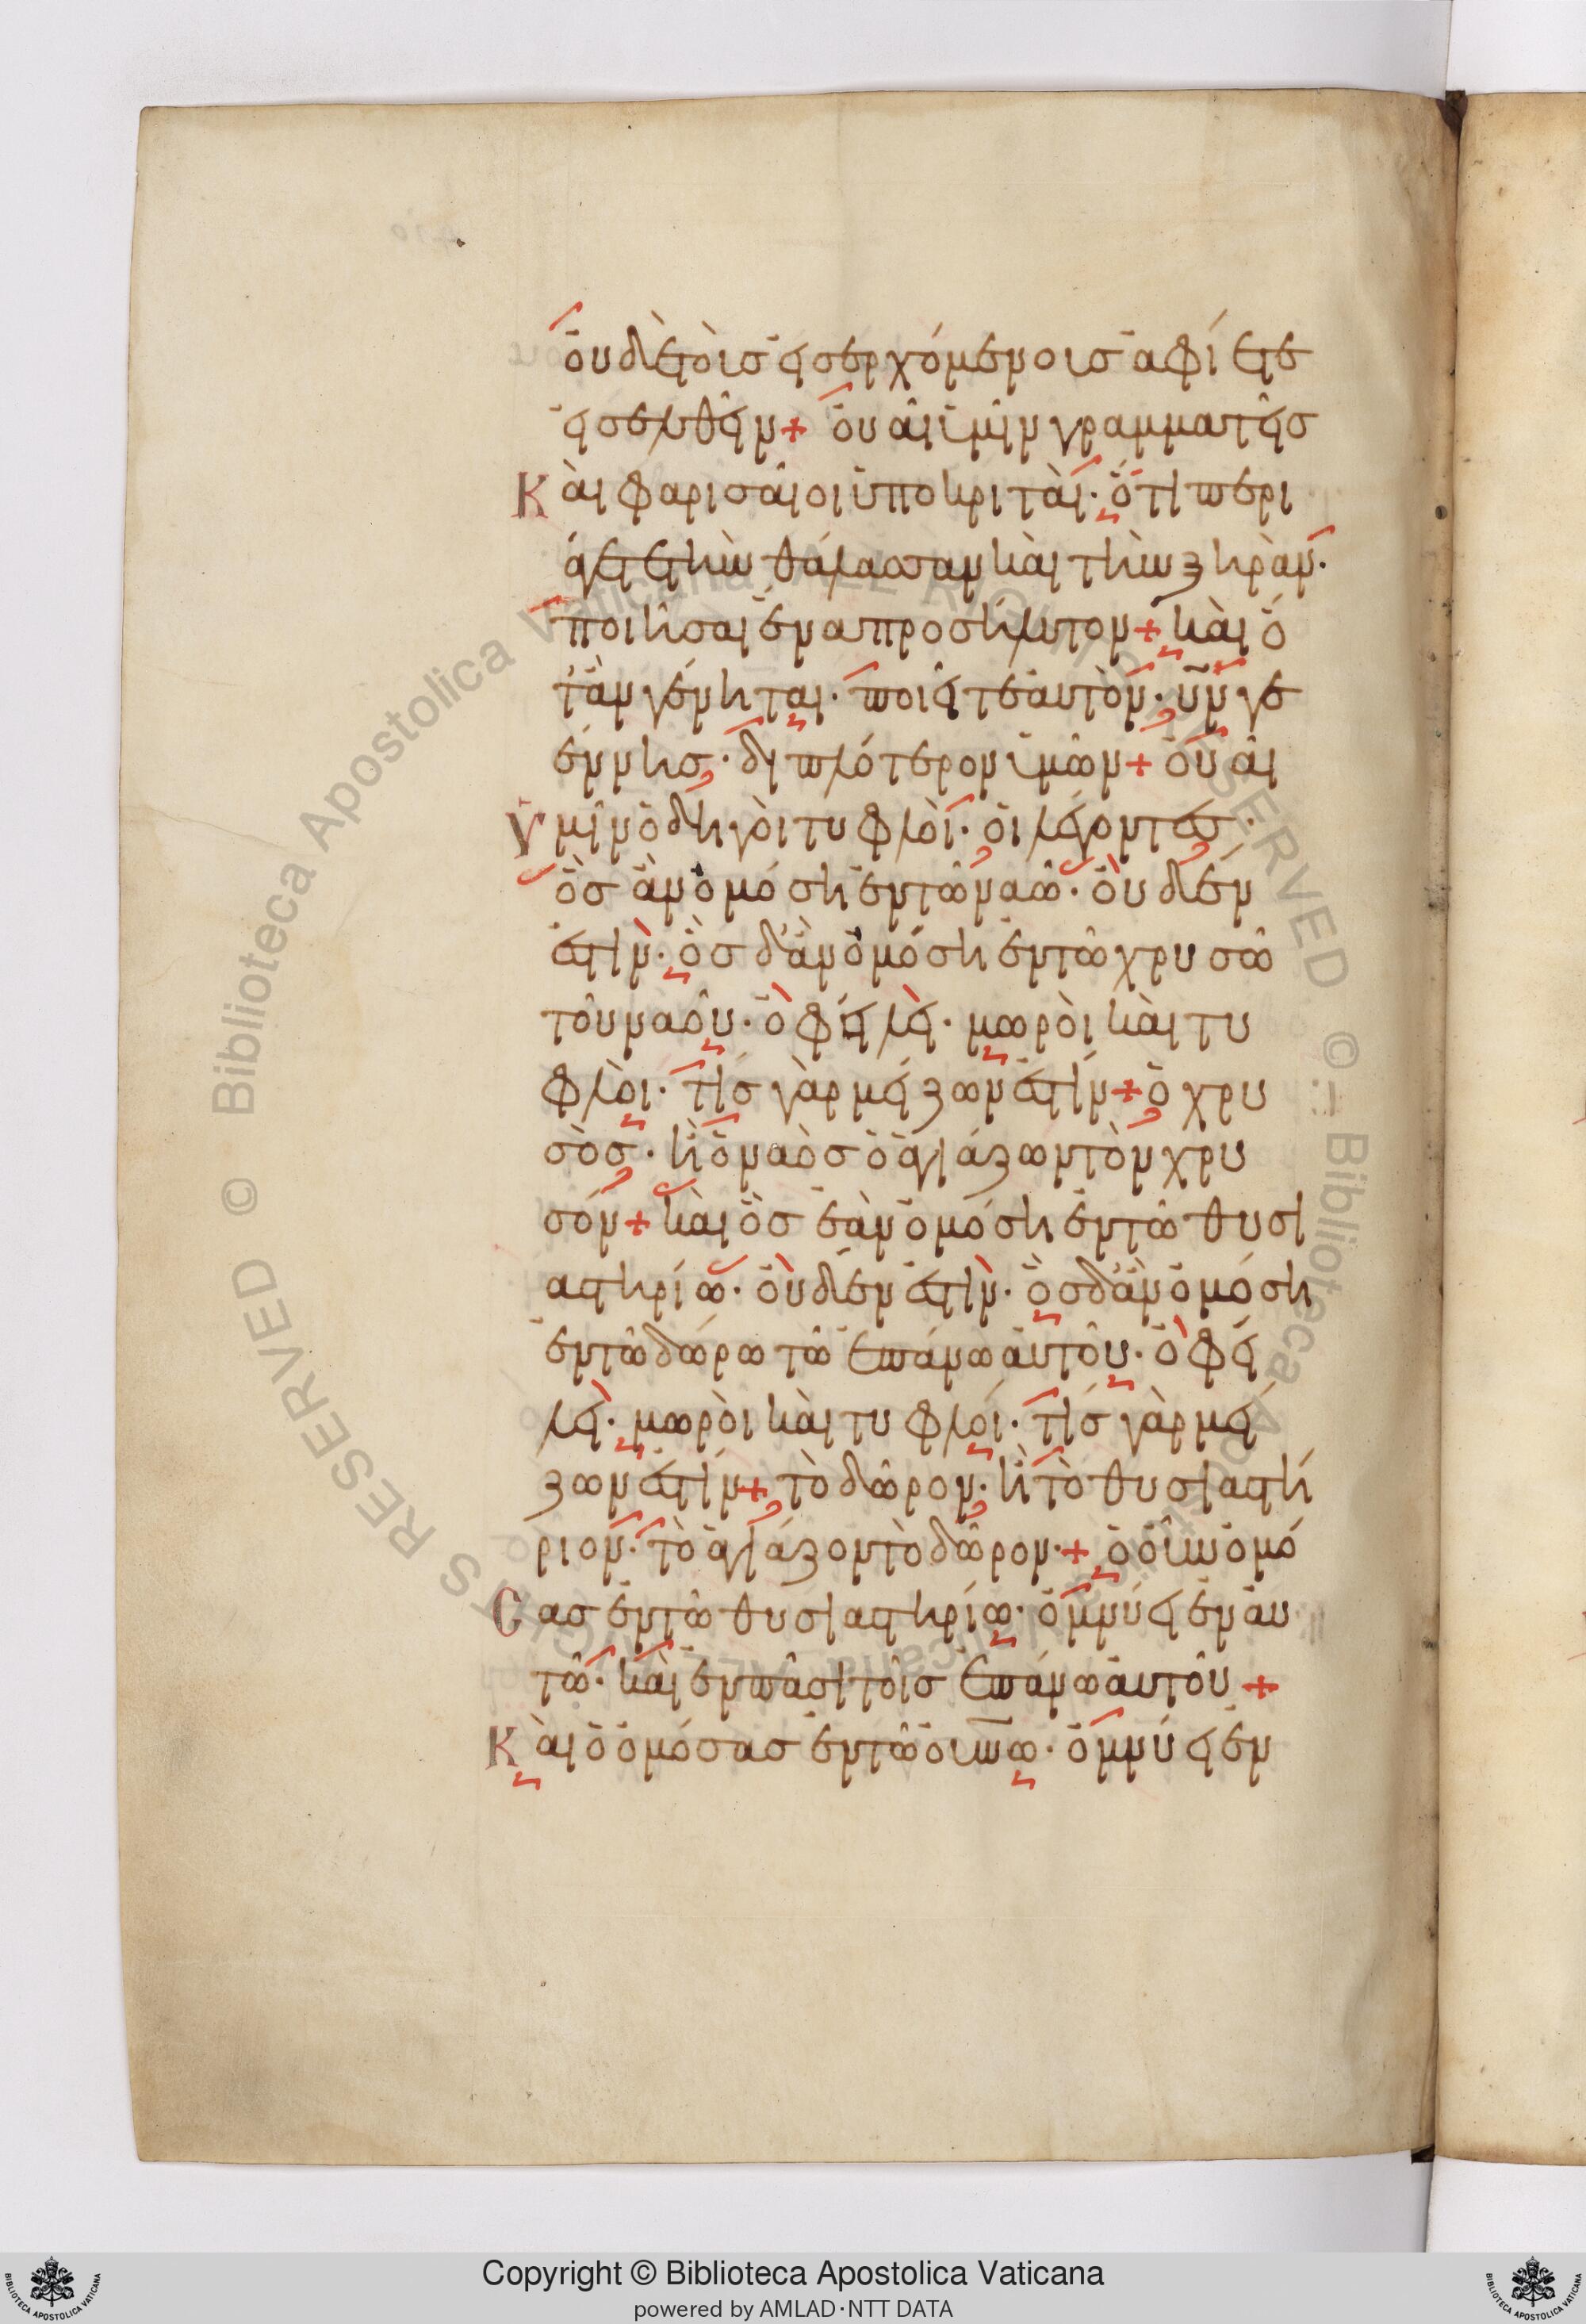 οὐδὲ τοὺς εἰσερχομένους ἀφίετε
εἰσελθεῖν + οὐαὶ ὑμῖν γραμματεῖς
Καὶ φαρισαῖοι ὑποκριταί· ὅτι περι
άγετε τὴν θάλασσαν καὶ τὴν ξηράν·
ποιῆσαι ἕνα προσήλυτον + καὶ ὅ
τ' ἂν γένηται· ποιεῖτε αὐτὸν· υἱὸν γε
έννης· διπλότερον ὑμῶν + οὐαὶ
Υμῖν ὁδηγοὶ τυφλοὶ· οἱ λέγοντες·
ὃς ἂν ὀμόση ἐν τῶ ναῶ· οὐδέν
ἐστιν· ὃς δ' ἂν ὀμόση ἐν τῶ χρυσῶ
τοῦ ναοῦ· ὀφείλει· μωροὶ καὶ τυ
φλοὶ· τίς γὰρ μείζων ἐστίν + ὁ χρυ
σὸς· ἢ ὁ ναὸς ὁ ἁγιάζων τὸν χρυ
σόν + καὶ ὃς ἐὰν ὀμόση ἐν τῶ θυσι
αστηρίω· οὐδέν ἐστιν· ὃς δ' ἂν ὀμόση
ἐν τῶ δώρω τῶ ἐπάνω αὐτοῦ· ὀφεί
λει· μωροὶ καὶ τυφλοί· τίς γὰρ μεί
ζων ἐστίν + τὸ δῶρον· ἢ τὸ θυσιαστή
ριον· τὸ ἁγιάζον τὸ δῶρον· + ὁ οὖν ὀμό
Σας ἐν τῶ θυσιαστηρίω· ὀμνύει ἐν αὐ
τῶ· καὶ ἐν πᾶσι τοῖς ἐπάνω αὐτοῦ +
Καὶ ὁ ὀμόσας ἐν τῶ οὐνῶ· ὀμνύει ἐν
Copyright © Biblioteca Apostolica Vaticana
powered by AMLAD·NTT DATA